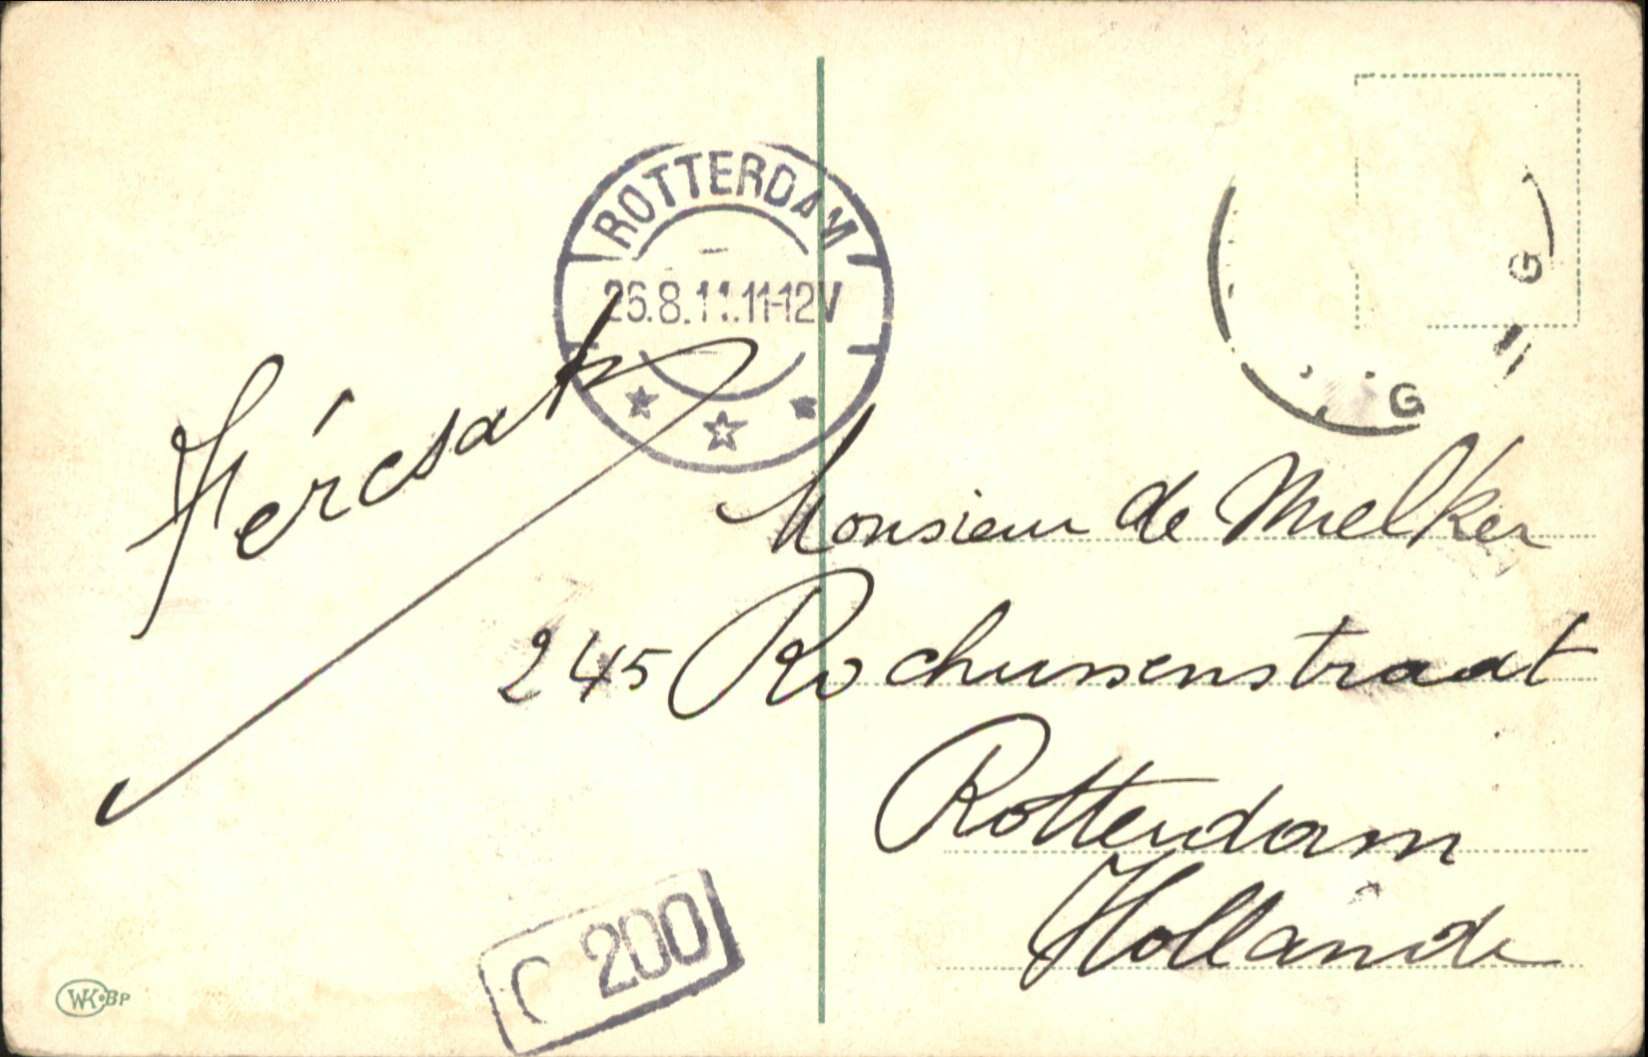 ROTTERDAM
26.8.11.11-12V
G
G
Monsieur de Melker
245 Rochussenstraat
Rotterdam
Hollande
200
WK•BP